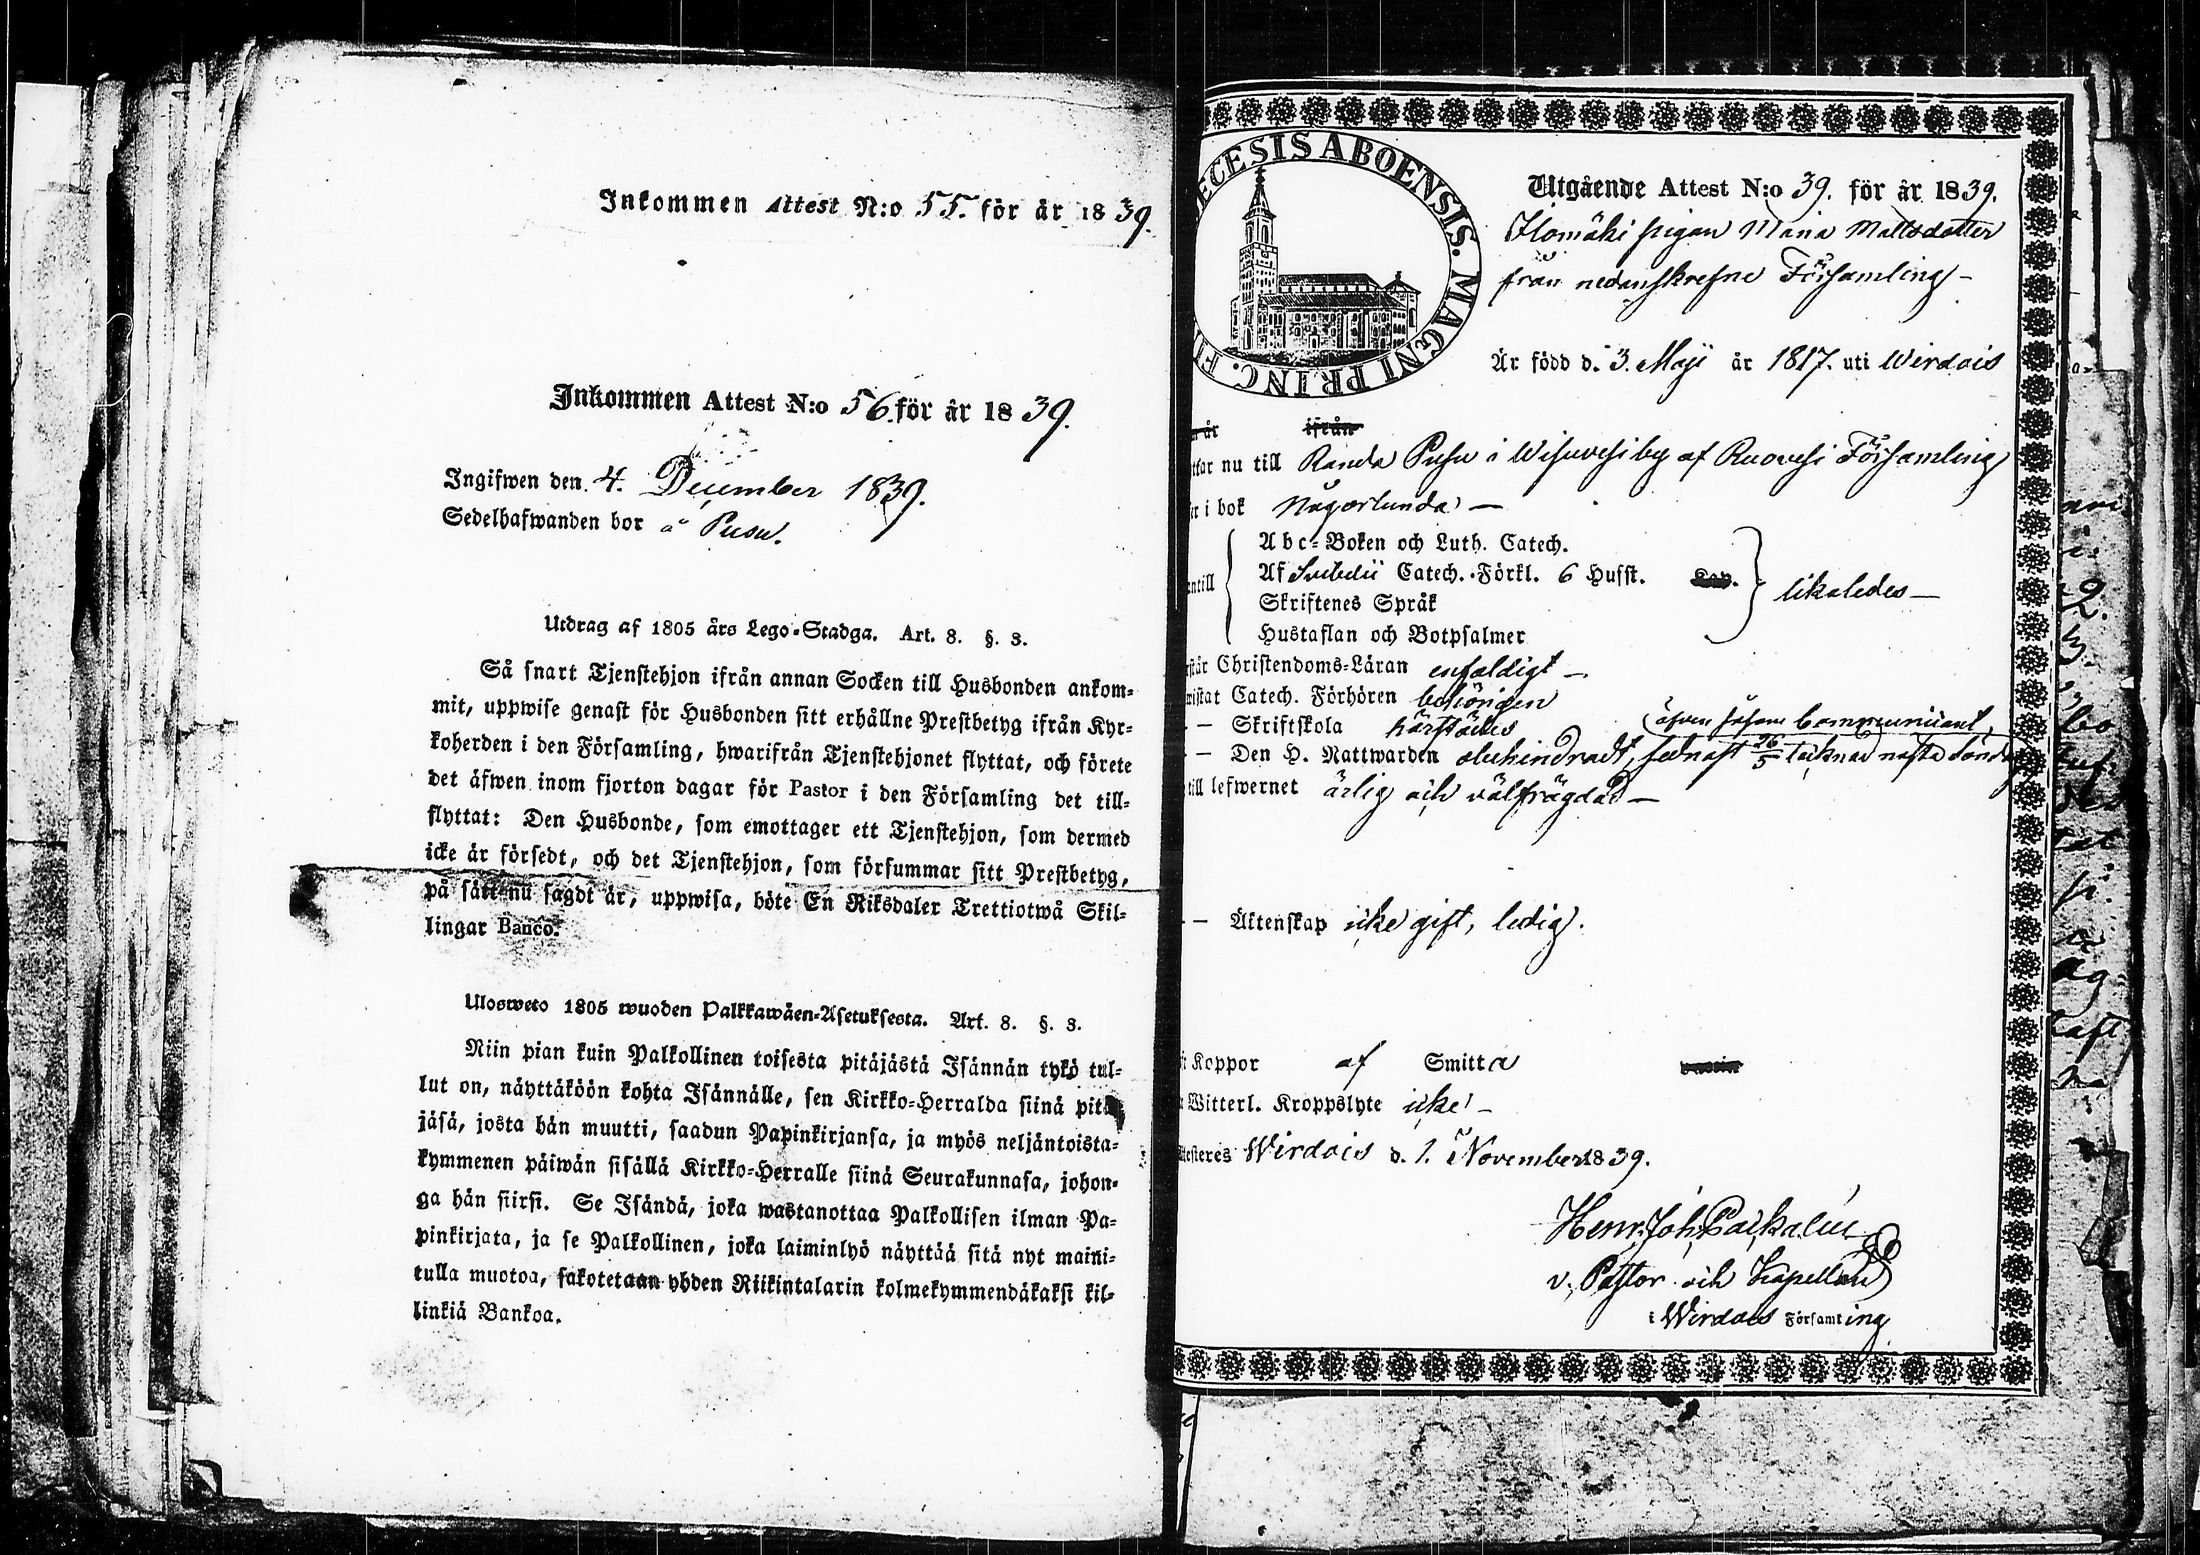 Inkommen Attest N:o 55. för år 1839.
Inkommen Attest N:o 56. för år 1839.
Ingifwen den 4. December 1839.
Sedelhafwanden bor å Pusu.
Utdrag af 1805 års Lego-Stadga. Art. 8. §. 3.
Så snart Tjenstehjon ifrån annan Socken till Husbonden ankom-
mit, uppwise genast för Husbonden sitt erhållne Prestbetyg ifrån Kyr-
koherden i den Församling, hwarifrån Tjenstehjonet flyttat, och förete
det äfwen inom fjorton dagar för Pastor i den Församling det till-
flyttat: Den Husbonde, som emottager ett Tjenstehjon, som dermed
icke är försedt, och det Tjenstehjon, som försummar sitt Prestbetyg,
på sätt nu sagdt är, uppwisa, böte En Riksdaler Trettiotwå Skil-
lingar Banco.
Ulosweto 1805 wuoden Palkkawäen-Asetuksesta. Art. 8. §. 3.
Niin pian kuin Palkollinen toisesta pitäjästä Isännän tykö tul-
lut on, näyttäköön kohta Isännälle, sen Kirkko-Herralda siinä pitä
jäsä, josta hän muutti, saadun Papinkirjansa, ja myös neljäntoista-
kymmenen päiwän sisällä Kirkko-Herralle siinä Seurakunnasa, johon-
ga hän siirsi. Se Isändä, joka wastanottaa Palkollisen ilman Pa-
pinkirjata, ja se Palkollinen, joka laiminlyö näyttää sitä nyt maini-
tulla muotoa, sakotetaan yhden Riikintalarin kolmekymmendäkaksi kil-
linkiä Bankoa.
ECESIS ABOENSIS. MAGNI PRINC. FI
Utgående Attest N:o 39. för år 1839.
Ilomäki pigan Maria Mattsdotter
från nedanskrefne Församling -
Är född d. 3. Maji år 1817. uti Wirdois
år ifrån
nu till Randa Pusu i Wisuvesi by af Ruovesi Församling
i bok Någorlunda -
Abc-Boken och Luth. Catech.
antill Af Svebelii Catech.-Förkl. 6 Hufst. Kap. likaledes -
Skriftenes Språk
Hustaflan och Botpsalmer
står Christendoms-Läran enfaldigt -
wistat Catech. Förhören behörigen
- Skriftskola härstädes (äfven såsom Communicant,
- Den H. Nattwarden obehindradt, sednast 26/5 tecknad nästa Sönd
till lefwernet ärlig och välfrägdad -
- Äktenskap icke gift, ledig.
Koppor af Smitta vaccin
Witterl. Kroppslyte icke -
Attesteres Wirdois d. 1. November 1839.
Henr. Joh.
v. Pastor och Kapellan
i Wirdois Församling